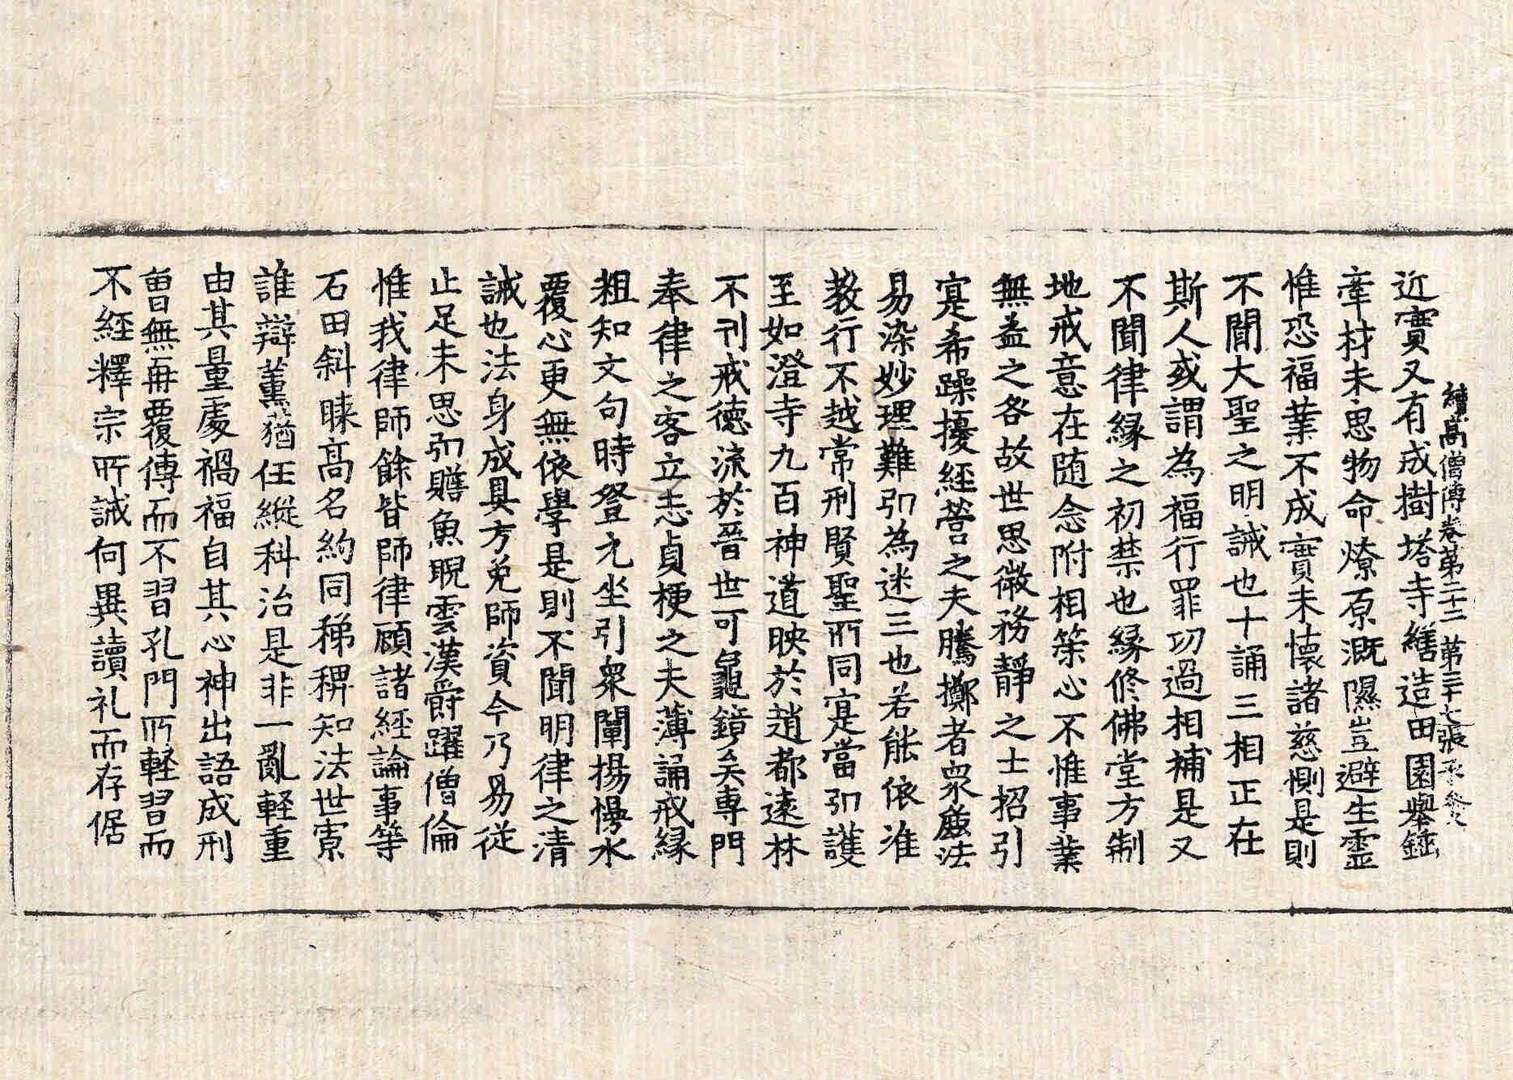 續高僧傳卷第二十二 第三十七張
近實又有成樹塔寺繕造田園舉鍤
牽材未思物命燎原溉隰豈避生靈
惟恐福業不成實未懷諸慈惻是則
不聞大聖之明誡也十誦三相正在
斯人或謂為福行罪功過相補是又
不聞律緣之初禁也緣修佛堂方制
地戒意在随念附相策心不惟事業
無益之咎故世思微務靜之士招引
寔希躁擾經營之夫騰擲者衆癈法
易染妙理難弘為迷三也若能依准
教行不越常刑賢聖所同寔當弘護
至如澄寺九百神道映於趙都遠林
不刊戒德流於晉世可龜鏡矣專門
奉律之客立志貞梗之夫薄誦戒緣
粗知文句時登元坐引衆闡揚慢水
覆心更無依學是則不聞明律之清
誡也法身成具方免師資今乃易從
止足未思弘贍魚睨雲漢爵躍僧倫
惟我律師餘皆師律顧諸經論事等
石田斜睞高名約同稊稗知法世寡
誰辯薰蕕任縱科治是非一亂輕重
由其量處禍福自其心神出語成刑
曾無再覆傳而不習孔門所輕習而
不經釋宗所誡何異讀礼而存倨